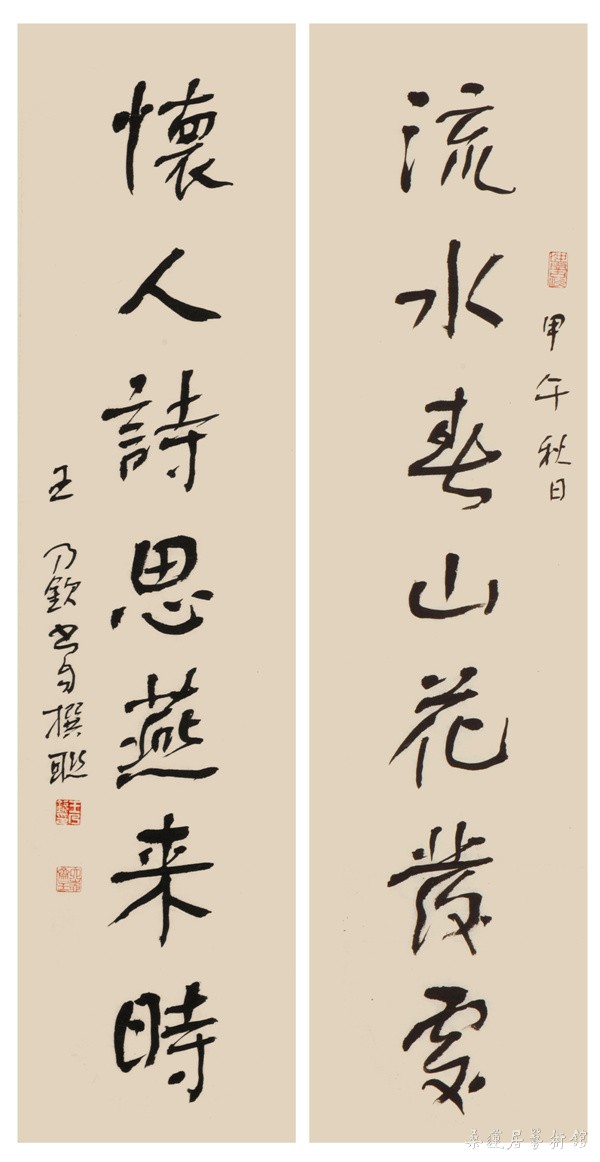 甲午秋日
流水春山花發處
懷人詩思燕来時
王乃欽書自撰聯